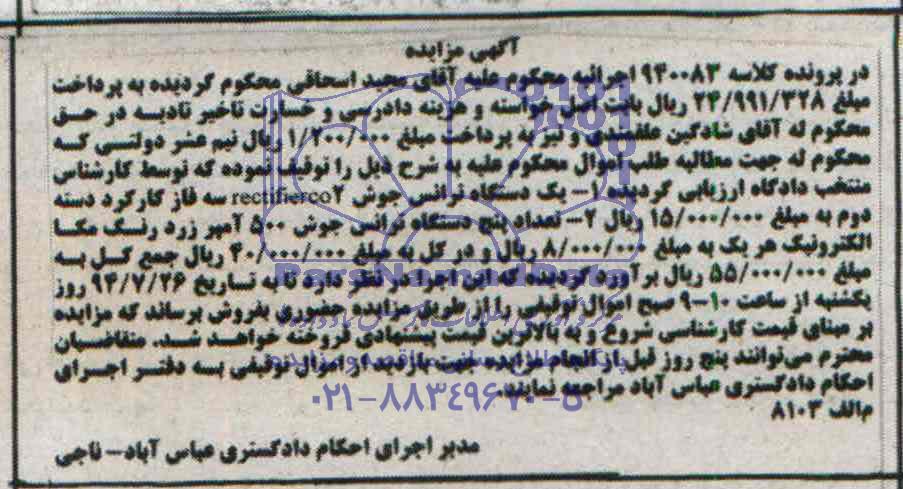 آگهی مزایده
در پرونده کلاسه ۹۴۰۰۸۳ اجرائیه محکوم علیه آقای مجید اسحاقی محکوم گردیده به پرداخت
مبلغ ۲۴/۹۹۱/۳۲۸ ریال بابت اصل خواسته و هزینه دادرسی و خسارت تاخیر تادیه در حق
محکوم له آقای شادگین علقبندی و نیز به پرداخت مبلغ ۱/۲۰۰/۰۰۰ ریال نیم عشر دولتی که
محکوم له جهت مطالبه طلب اموال محکوم علیه به شرح ذیل را توقیف نموده که توسط کارشناس
منتخب دادگاه ارزیابی گردیده ۱- یک دستگاه ترانس جوش rectifierco۲ سه فاز کارکرد دسته
دوم به مبلغ ۱۵/۰۰۰/۰۰۰ ریال ۲- تعداد پنج دستگاه ترانس جوش ۵۰۰ آمپر زرد رنگ مکا
الکترونیک هر یک به مبلغ ۸/۰۰۰/۰۰۰ ریال و در کل به مبلغ ۴۰/۰۰۰/۰۰۰ ریال جمع کل به
مبلغ ۵۵/۰۰۰/۰۰۰ ریال برآورد گردیده که این اجرا در نظر دارد تا به تاریخ ۹۴/۷/۲۶ روز
یکشنبه از ساعت ۱۰-۹ صبح اموال توقیفی را از طریق مزایده حضوری بفروش برساند که مزایده
بر مبنای قیمت کارشناسی شروع و به بالاترین قیمت پیشنهادی فروخته خواهد شد. متقاضیان
محترم می‌توانند پنج روز قبل از انجام مزایده جهت بازدید از اموال توقیفی به دفتر اجرای
احکام دادگستری عباس آباد مراجعه نمایند.
۰۲۱-۸۸۳۴۹۶۷۰-۵
م‌الف ۸۱۰۳
مدیر اجرای احکام دادگستری عباس آباد- ناجی